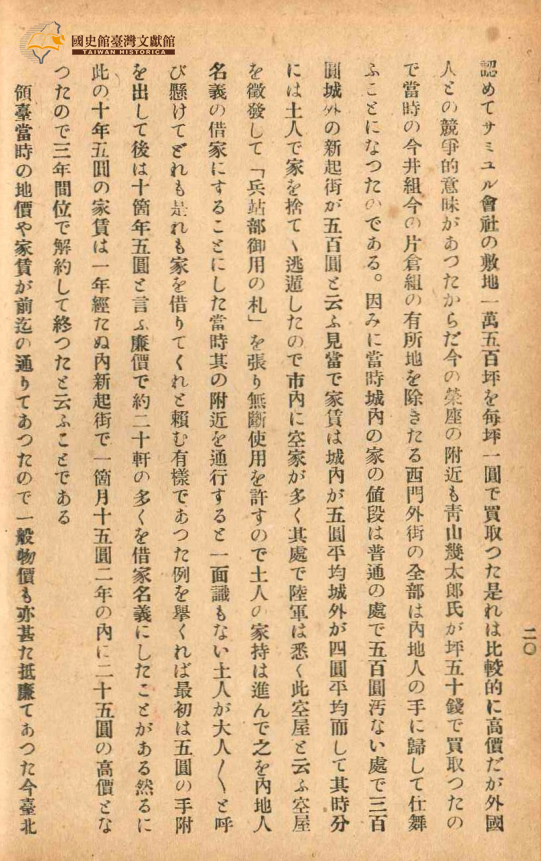 國史館臺灣文獻館
TAIWAN HISTORICA
二〇
認めてサミユル會社の敷地一萬五百坪を每坪一圓で買取つた是れは比較的に高價だが外國
人との競爭的意味があつたからだ今の榮座の附近も靑山幾太郞氏が坪五十錢で買取つたの
で當時の今井組今の片倉組の有所地を除きたる西門外街の全部は內地人の手に歸して仕舞
ふことになつたのである。因みに當時城內の家の値段は普通の處で五百圓汚ない處で三百
圓城外の新起街が五百圓と云ふ見當で家賃は城內が五圓平均城外が四圓平均而して其時分
には土人で家を捨て〱逃遁したので市內に空家が多く其處で陸軍は悉く此空屋と云ふ空屋
を徵發して「兵站部御用の札」を張り無斷使用を許すので土人の家持は進んで之を內地人
名義の借家にすることにした當時其の附近を通行すると一面識もない土人が大人〱と呼
び懸けてどれも是れも家を借りてくれと賴む有樣であつた例を擧くれば最初は五圓の手附
を出して後は十箇年五圓と言ふ廉價で約二十軒の多くを借家名義にしたことがある然るに
此の十年五圓の家賃は一年經たぬ內新起街で一箇月十五圓二年の內に二十五圓の高價とな
つたので三年間位で解約して終つたと云ふことである
領臺當時の地價や家賃が前迄の通りてあつたので一般物價も亦甚た抵廉てあつた今臺北